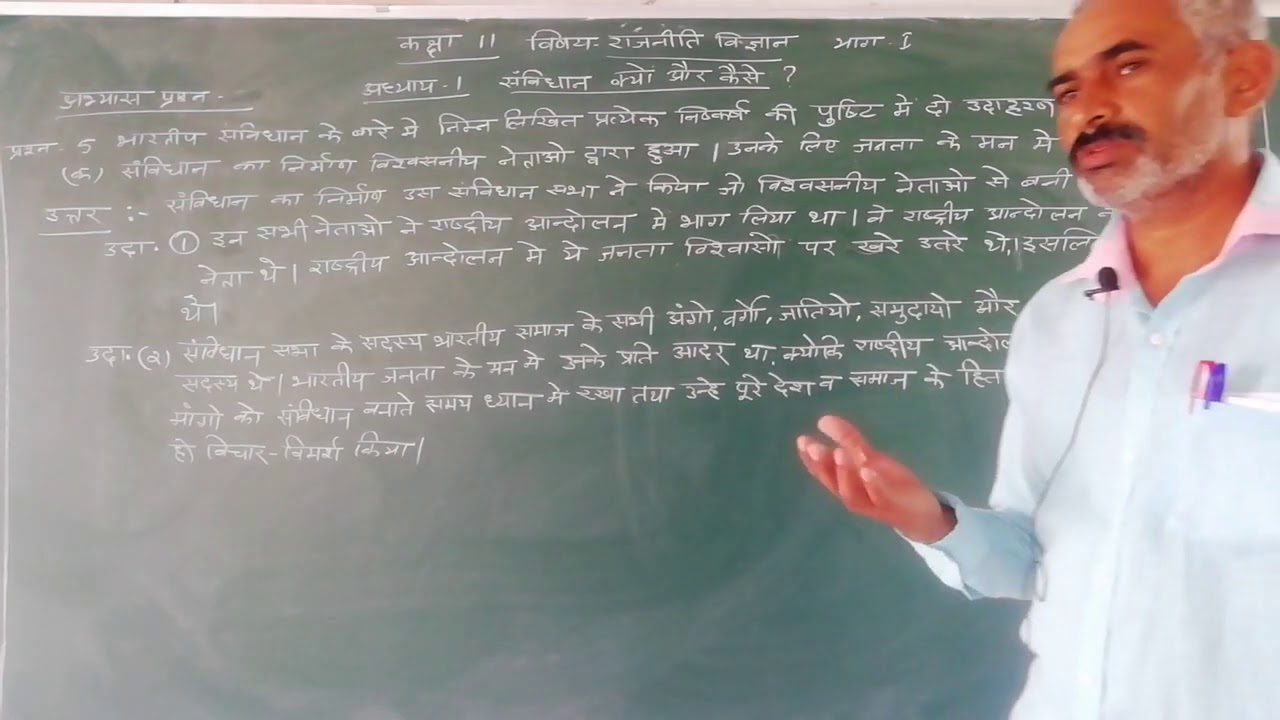 कक्षा 11 विषय- राजनीति विज्ञान भाग-I
अध्याय-1 संविधान क्यों और कैसे ?
अभ्यास प्रश्न -
प्रश्न- 5 भारतीय संविधान के बारे में निम्न लिखित प्रत्येक निष्कर्ष की पुष्टि में दो उदाहरण
(क) संविधान का निर्माण विश्वसनीय नेताओ द्वारा हुआ । उनके लिए जनता के मन मे
उत्तर :- संविधान का निर्माण उस संविधान सभा ने किया जो विश्वसनीय नेताओ से बनी
उदा. ① इन सभी नेताओ ने राष्ट्रीय आन्दोलन मे भाग लिया था । वे राष्ट्रीय आन्दोलन
नेता थे । राष्ट्रीय आन्दोलन मे ये जनता विश्वासो पर खरे उतरे थे,। इसलि
थे।
उदा. (२) संविधान सभा के सदस्य भारतीय समाज के सभी अंगो, वर्गो, जातियो, समुदायो और
सदस्य थे । भारतीय जनता के मन मे उनके प्रति आदर था. क्योकि राष्ट्रीय आन्दोल
मांगो को संविधान बनाते समय ध्यान मे रखा तथा उन्हे पूरे देश व समाज के हित
हो विचार-विमर्श किया।